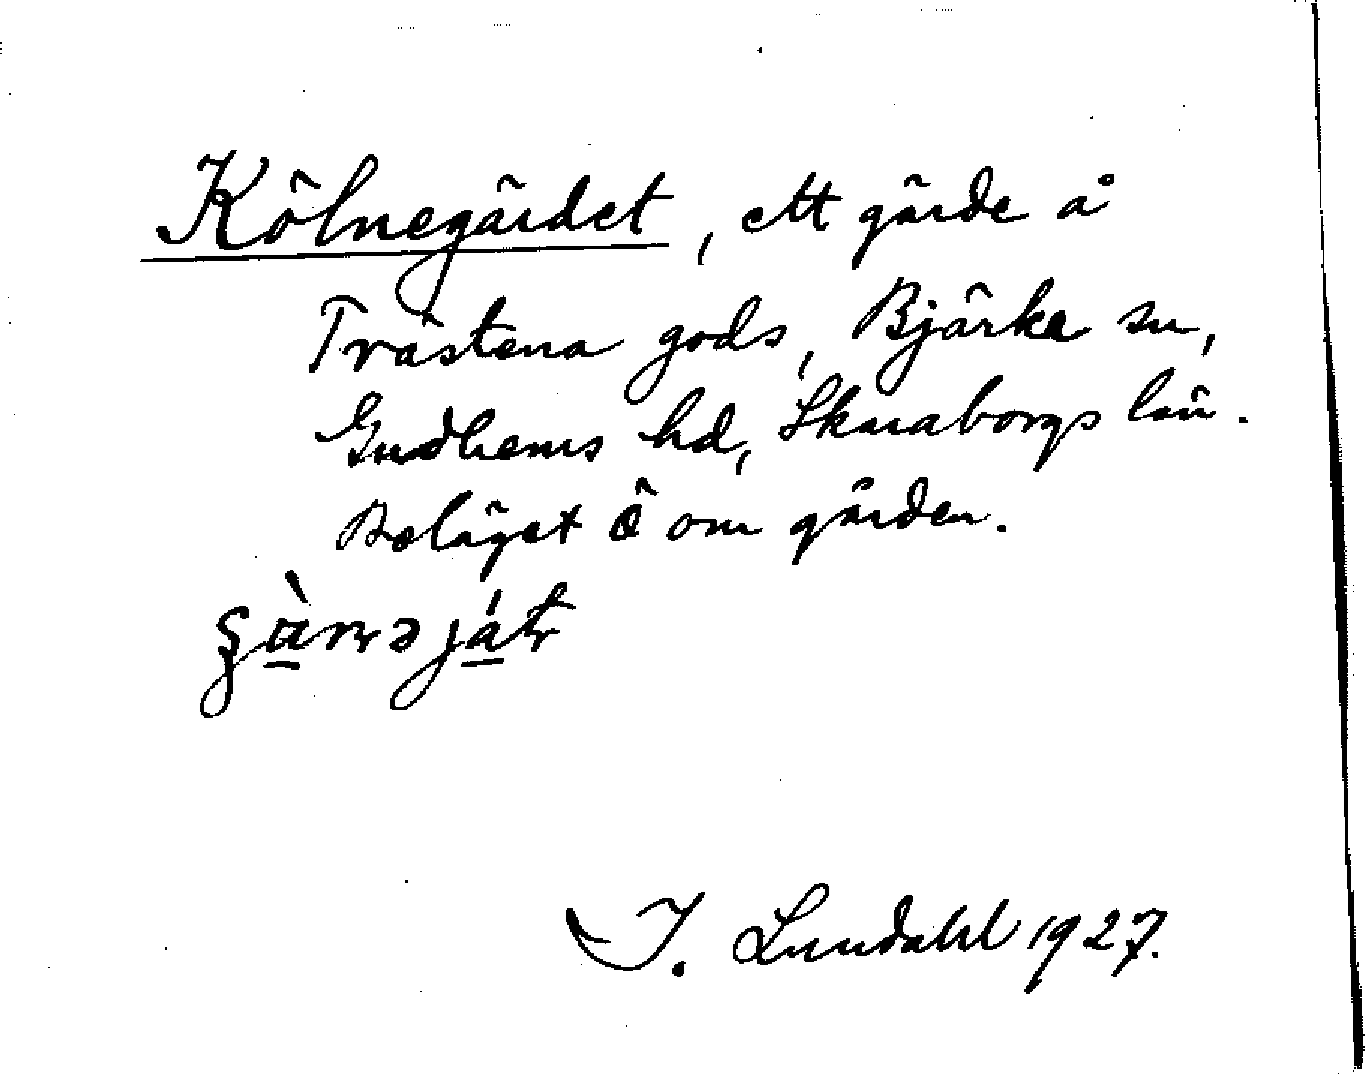 Kölnegärdet, ett gärde å
Trästena gods, Bjärke sn,
Gudhems hd, Skaraborgs län.
Beläget Ö om gården.
I. Lundahl 1927.